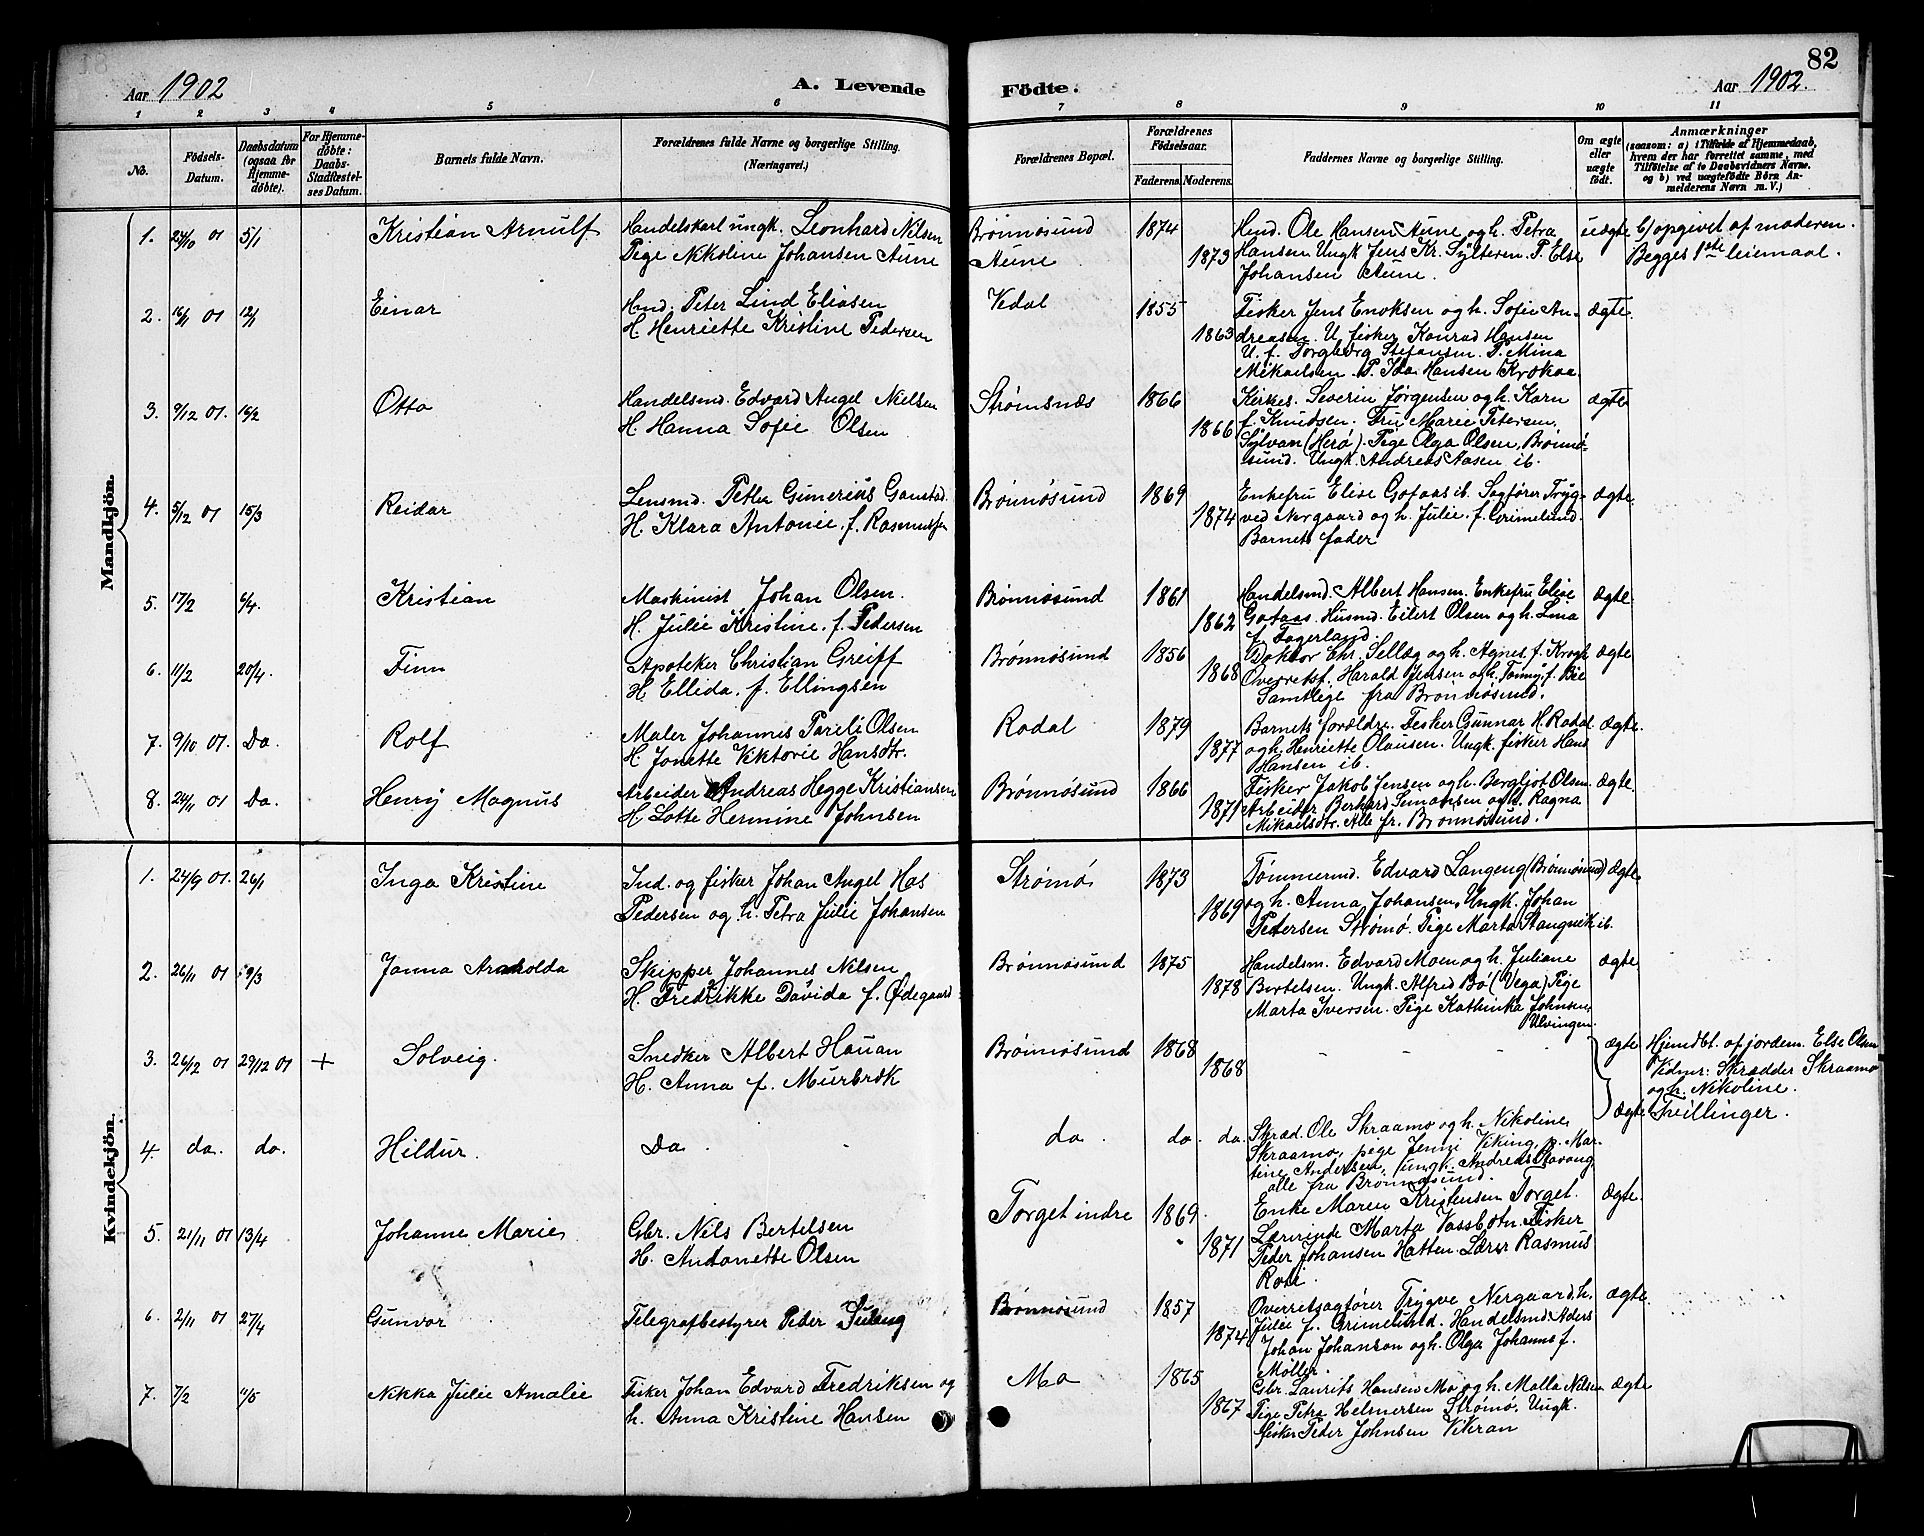 82
Aar 1902 A. Levende Födte. Aar 1902.
1 2 3 4 5 6 7 8 9 10 11
No.
Födsels-Datum.
Daabsdatum (ogsaa for Hjemme-døbte).
For Hjemme-døbte: Daabs-Stadfæstelses Datum.
Barnets fulde Navn.
Forældrenes fulde Navne og borgerlige Stilling. (Næringsvei.)
Forældrenes Bopæl.
Forældrenes Födselsaar.
Faderens. Moderens.
Faddernes Navne og borgerlig Stilling.
Om ægte eller uægte født.
Anmærkninger
(saasom: a) i Tilfælde af Hjemmedaab,
hvem der har forrettet samme, med
Tilföielse af to Daabsvidners Navne.
og b) ved uægtefödte Börn An-
melderens Navn m. V.)
Mandkjön.
1. 23/10 01 5/1 Kristian Arnulf Handelskarl ungk. Leonhard Nilsen Brønnøsund 1874 Hmd. Ole Hansen Aune og h. Petra uægte b/ opgivet af moderen.
Pige Nikoline Johansen Aune Aune 1873 Hansen Ungk Jens Kr. Sylteren. P. Else Begges 1ste leiemaal.
Johansen Aune.
2. 16/11 01 12/1 Einar Hmd. Peter Lind Eliasen Vedal 1855 Fisker Jens Enoksen og h. Sofie An- ægte.
H. Henriette Kristine Pedersen 1863 dreasen. U. fisker Konrad Hansen
U. f. Torgberg Stefansen. P. Mina
Mikaelsen. P. Ida Hansen Krokaa.
3. 9/12 01. 16/2 Otto Handelsmd. Edvard Angel Nielsen Strømsnæs 1866 Kirkes. Severin Jørgensen og h. Karn ægte
H. Hanna Sofie Olsen 1866 f. Knudsen. Fru Marie Petersen,
Sylvan (Herø). Pige Olga Olsen, Brønnø-
sund. Ungk. Andreas Aasen ib.
4. 5/12 01 15/3 Reidar Lensmd. Petter Gunerius Ganstad. Brønnøsund 1869 Enkefru Elise Gofaas ib. Sagfører Tryg- ægte
H. Klara Antonie. f. Rasmussen 1874 ved Nergaard og h. Julie. f. Grimelund.
Barnets fader
5. 17/2 6/4. Kristian Maskinist Johan Olsen. Brønnøsund 1861 Handelsmd. Albert Hansen. Enkefru Elise ægte.
H. Julie Kristine. f. Pedersen 1862 Gofaas. Husmd. Eilert Olsen og h. Lina
f. Fagerland.
6. 11/2 20/4. Finn Apoteker Christian Greiff Brønnøsund 1856 Doktor Chr. Sellæg og h. Agnes f. Krogh ægte
H. Ellida. f. Ellingsen 1868 Overretsf. Harald Jensen og h. Fanny f. Bie
Samtlige fra Brønnøsund.
7. 9/10 01. Do. Rolf Maler Johannes Pareli Olsen Rodal 1879 Barnets forældre. Fisker Gunnar H. Rodal ægte.
H. Jonette Viktorie Hansdtr. 1877 og h. Henriette Olausen. Ungk. fisker Hans
Hansen ib.
8. 24/11 01 Do. Henry Magnus Arbeider Andreas Hegge Kristiansen Brønnøsund 1866 Fisker Jakob Jensen og h. Bergljot Olsen ægte.
H. Lotte Hermine Johnsen 1871 Arbeider Berhard Simonsen og h. Ragna
Mikaelsdtr. Alle fr. Brønnøsund.
Kvindekjön.
1. 24/9 01. 26/1 Inga Kristine Ind. og fisker Johan Angel Has Strømø 1873 Tømmermd. Edvard Langeng (Brønnøsund) ægte
Pedersen og h. Petra Julie Johansen 1869 og h. Anna Johansen. Ungk. Johan
Petersen Strømø. Pige Marta Stangnæs ib.
2. 26/11 01 9/3 Janna Arnholda Skipper Johannes Nilsen Brønnøsund 1875 Handelsm. Edvard Moen og h. Juliane ægte
H. Fredrikke Davida f. Ødegaard 1878 Bertelsen. Ungk. Alfred Bø (Vega) Pige
Marta Iversen. Pige Kathinka Johnsen,
Ulvingen.
3. 26/12 01 29/12 01 + Solveig. Snedker Albert Hauan Brønnøsund 1868 - - - ægte Hjemdbt. af jordem. Else Olsen
H. Anna f. Murbræk 1868 Vidner: Skrædder Skraamo
og h. Nikoline.
ægte Tvillinger.
4. da. do. Hildur. Do. do. do. do. Skræd. Ole Skraamo og h. Nikoline
Skraamo, pige Jenni Viking, p. Mar-
tine Andersen, ungk. Andreas Stavang
alle fra Brønnøsund.
5. 21/11 01 13/4 Johanne Marie Gbr. Nils Bertelsen Torget indre 1869 Enke Maren Kristensen Torget. Ægte.
H. Antonette Olsen 1871 Lærerinde Marta Vassbotn. Fisker
Peder Johansen Hatten. Lærer Rasmus
Rosi.
6. 2/11 01 27/4 Gunvor Telegrafbestyrer Peder Brønnøsund 1857 Overretsagfører Trygve Nergaard h. ægte.
1874 Julie f. Grimelund. Handelsmd. Aders
Johan Johanson og h. Olga Johanne f.
Møller.
7. 7/2 11/5 Nikka Julie Amalie Fisker Johan Edvard Fredriksen og Mo 1865 Gbr. Laurits Hansen Mo og h. Malla Nilsen ægte
h. Anna Kristine Hansen 1867 Pige Petra Helmersen Strømø. Ungk.
fisker Peder Johnsen Vikran